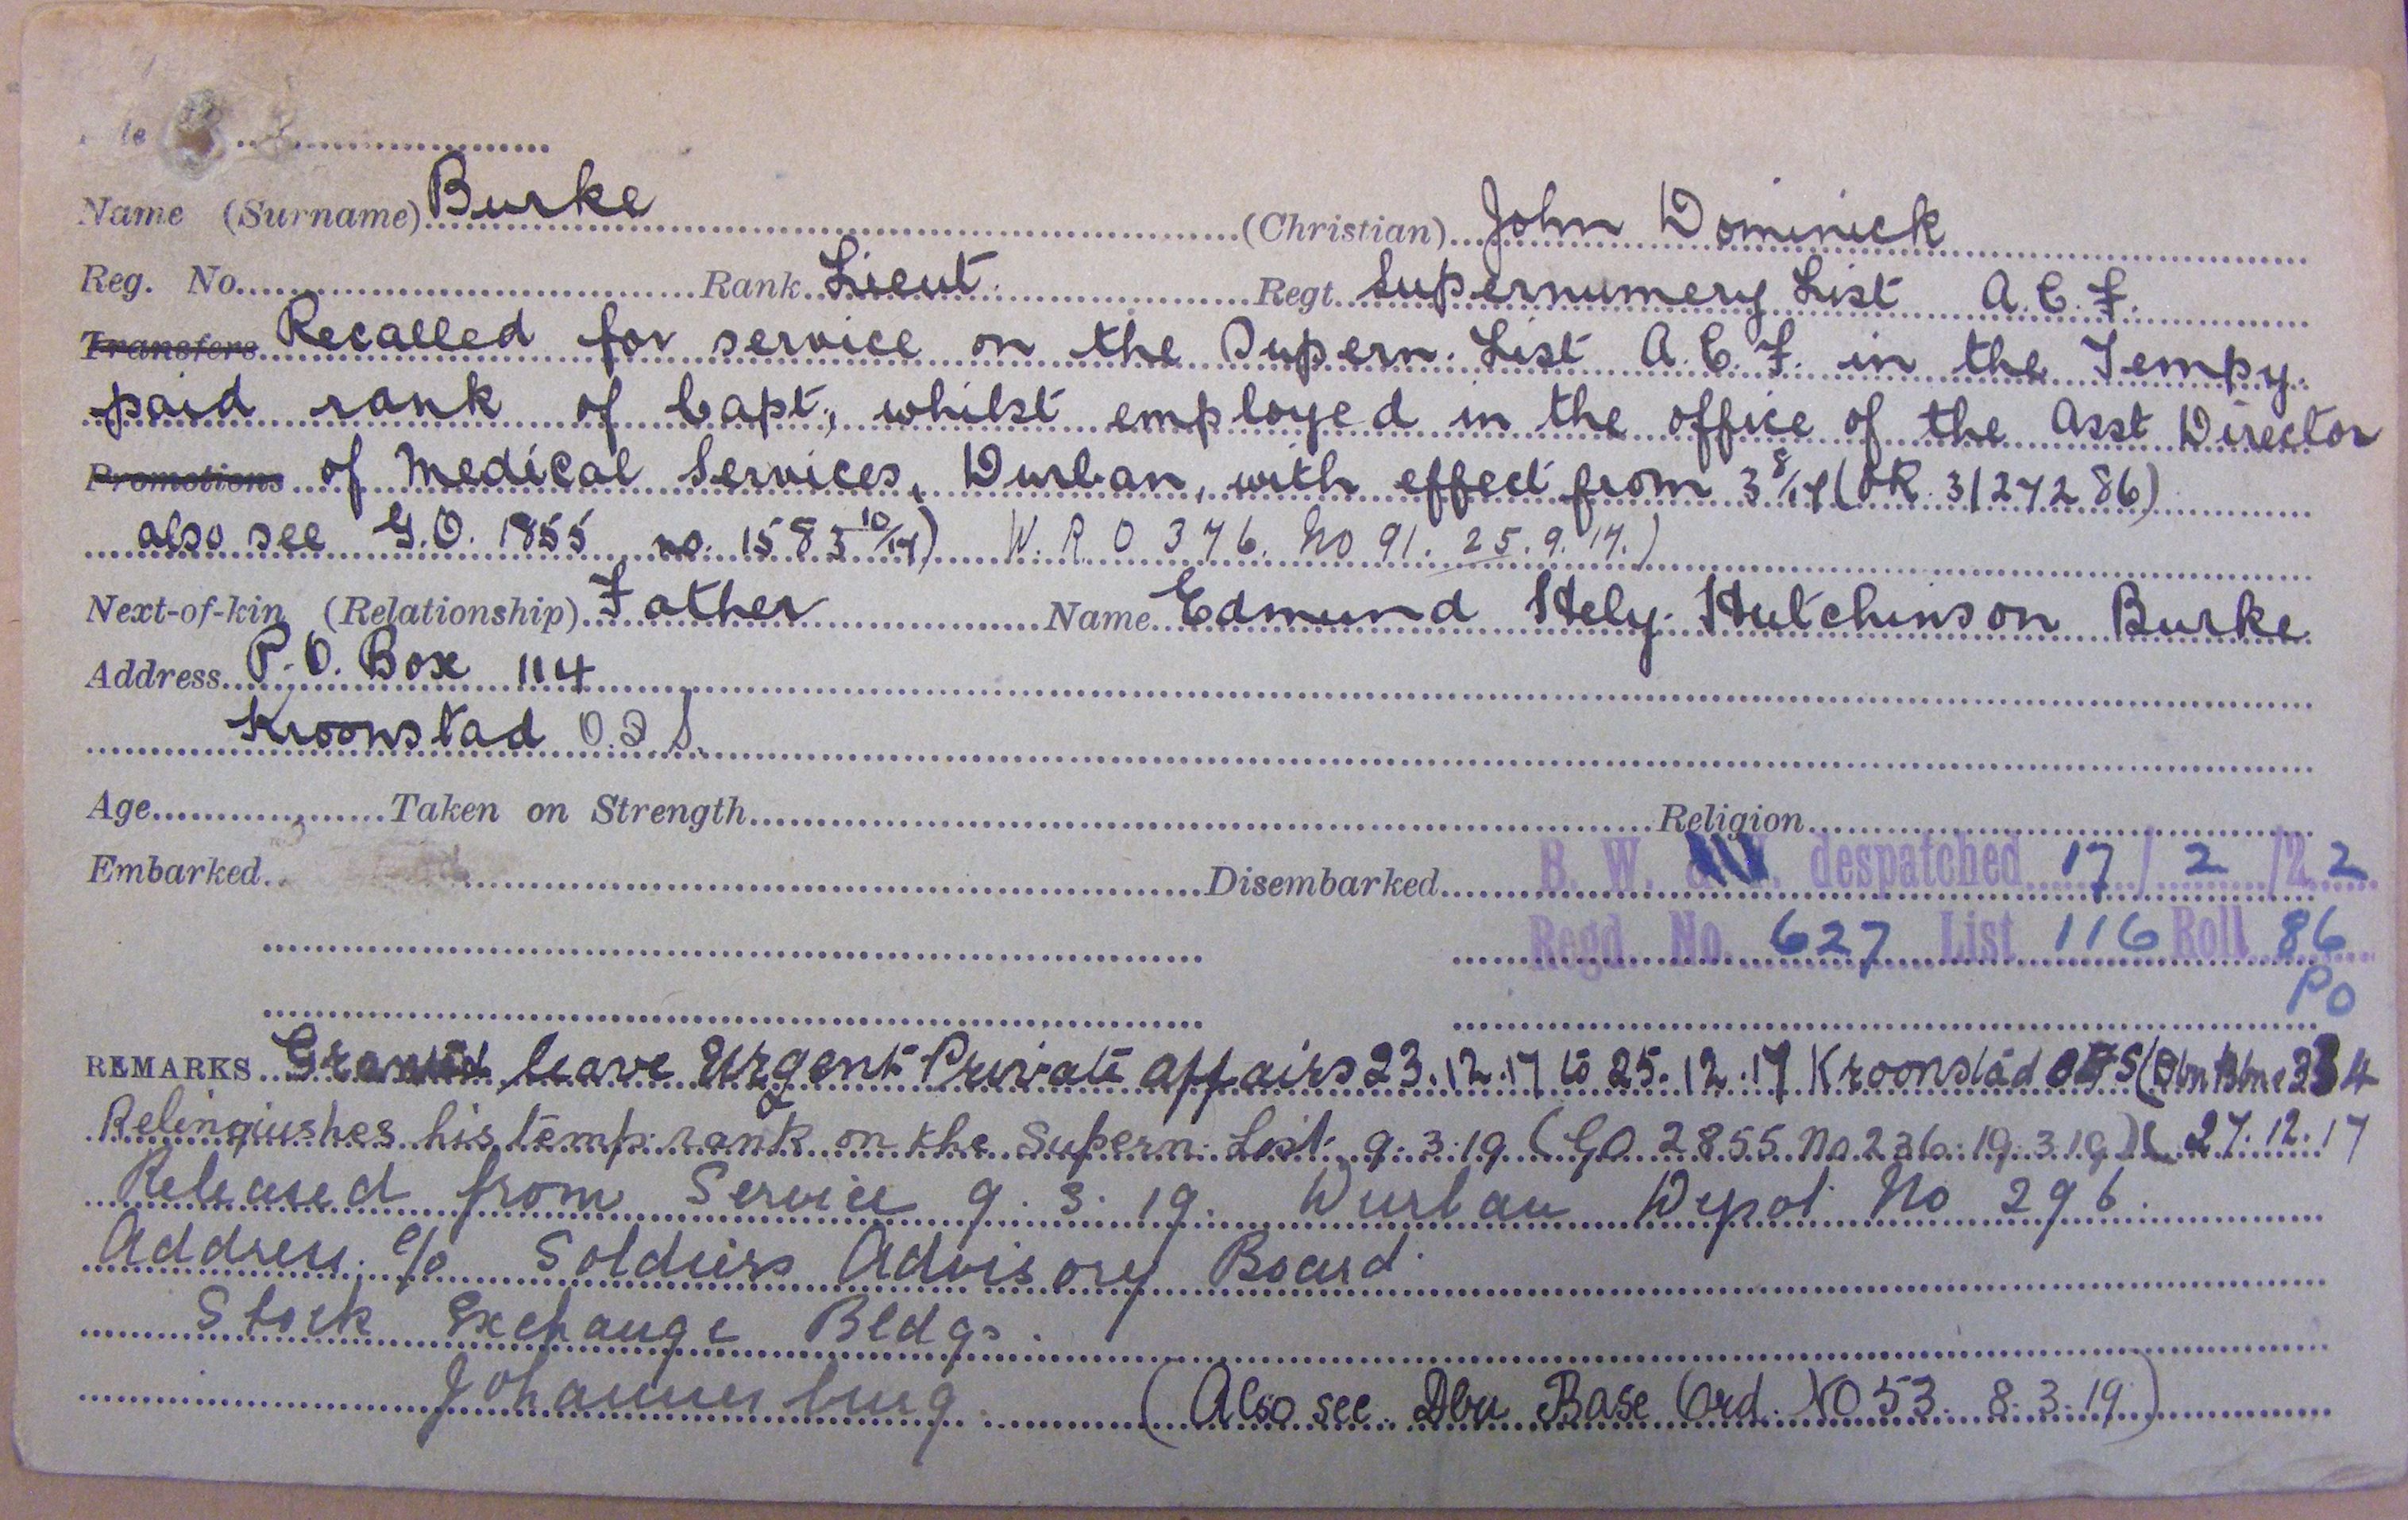 Name (Surname) Burke (Christian) John Dominick
Reg. No. Rank Lieut. Regt Supernumery List A.C.F.
Transfers Recalled for service on the Supern. List A.C.F. in the Tempy.
paid rank of Capt, whilst employed in the office of the Asst Director
Promotions of Medical Services, Durban, with effect from 3 8/17 (OR. 3/272 86)
also see G.O. 1855 no. 158 3 10/17) W.R.O 376. No 91. 25.9.17.)
Next-of-kin (Relationship) Father Name Edmund Hely-Hutchinson Burke
Address P.O. Box 114
Kroonstad O.F.S.
Age Taken on Strength Religion
Embarked Disembarked B. W. despatched 17/2/22
Regd. No. 627 List 116 Roll 86
PO
REMARKS Granted leave Urgent Private affairs 23.12.17 to 25.12.17 Kroonstad OFS (Dbn 334
Relinqiushes his temp. rank on the Supern. List. 9.3.19 (GO 2855 No 236. 19.3.19) 27.12.17
Released from Service 9.3.19. Durban Depot No 296.
Address. c/o Soldiers Advisory Board
Stock Exchange Bldgs.
Johannesburg. (Also see Dbn Base Ord. NO 53. 8.3.19)